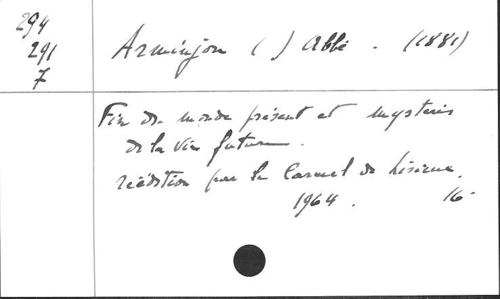 294
291
7
Arminjon ( ) Abbé . (1881)
Fin du monde présent et mystères
de la vie future.
réédition par le Carmel de Lisieux.
1964. 16